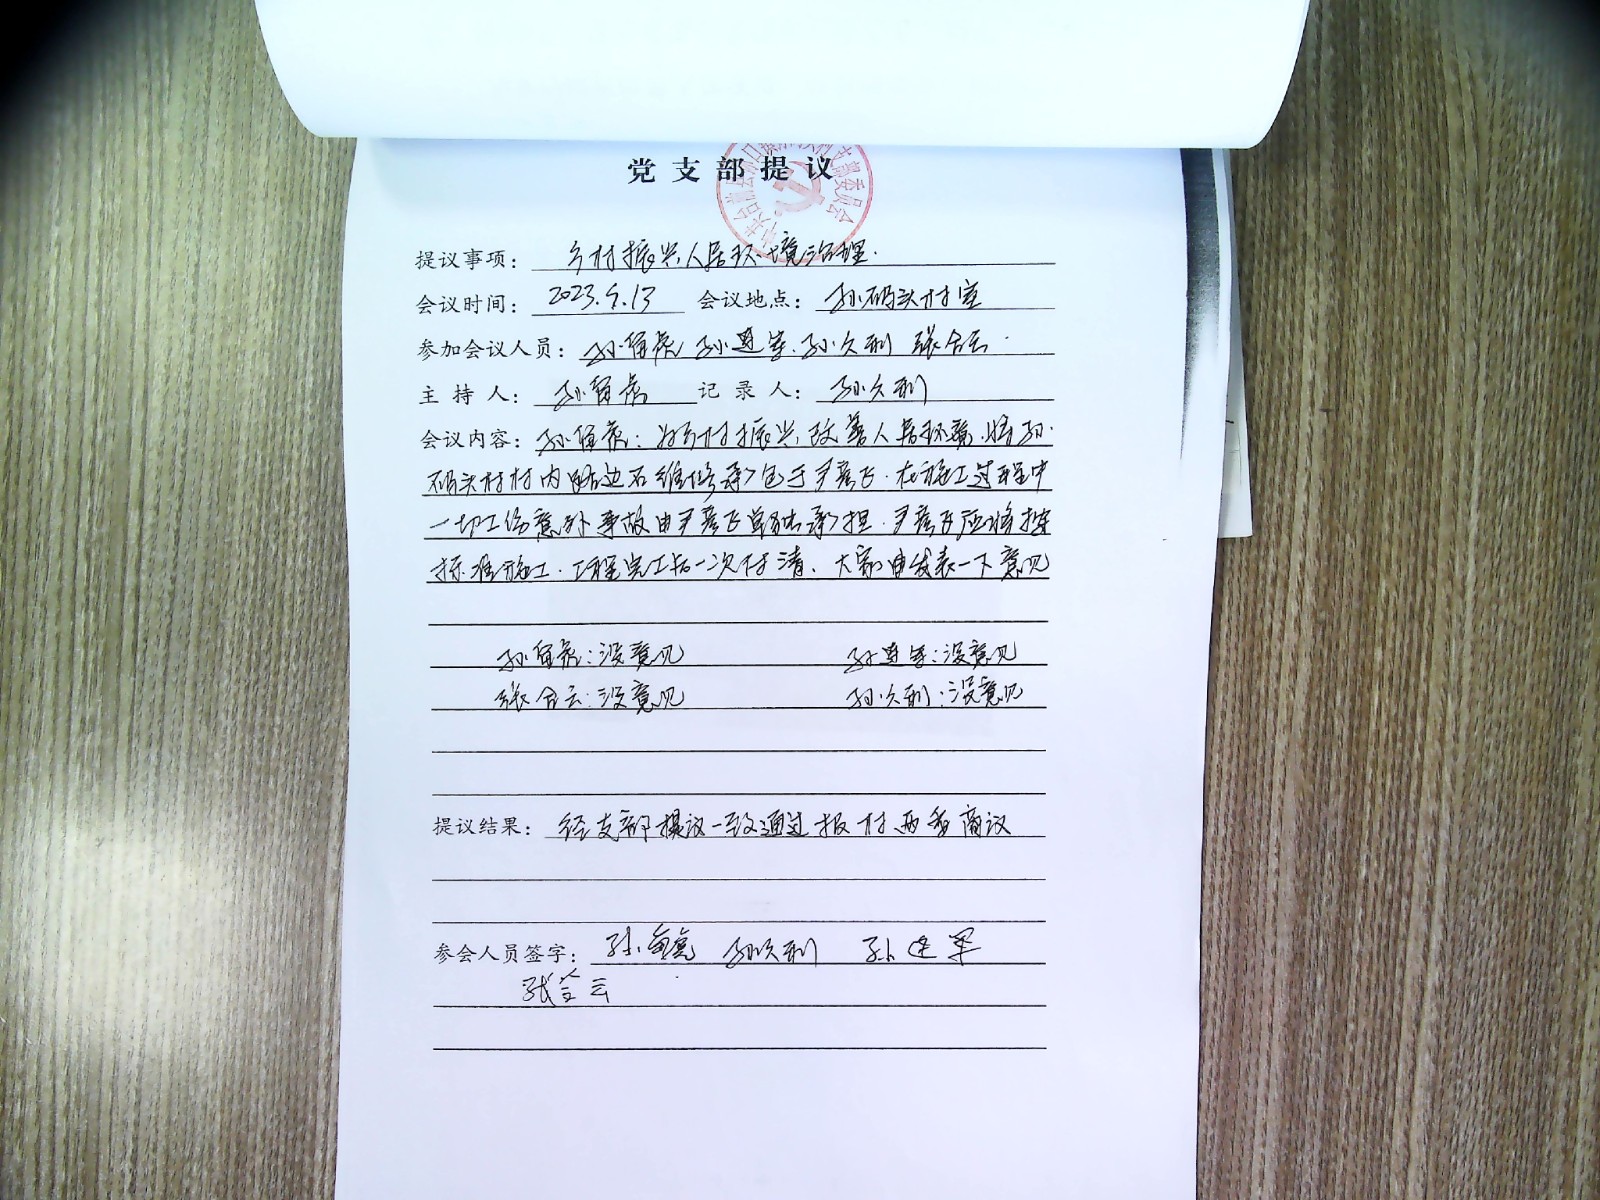 党支部提议
提议事项：乡村振兴人居环境治理.
会议时间：2023.5.13 会议地点：孙码头村室
参加会议人员：孙 孙建军.孙久利 张合云.
主持人：孙 记录人：孙久利
会议内容：孙：为乡村振兴,改善人居环境.将孙
码头村村内路边石维修承包于尹彦飞.在施工过程中
一切工伤意外事故由尹彦飞 承担.尹彦飞应将按
标准施工.工程完工后一次付清、大家 发表一下意见
孙：没意见 孙建军：没意见
张合云：没意见 孙久利：没意见
提议结果：经支部提议一致通过报村两委商议
参会人员签字：孙 孙久利 孙建军
张合云